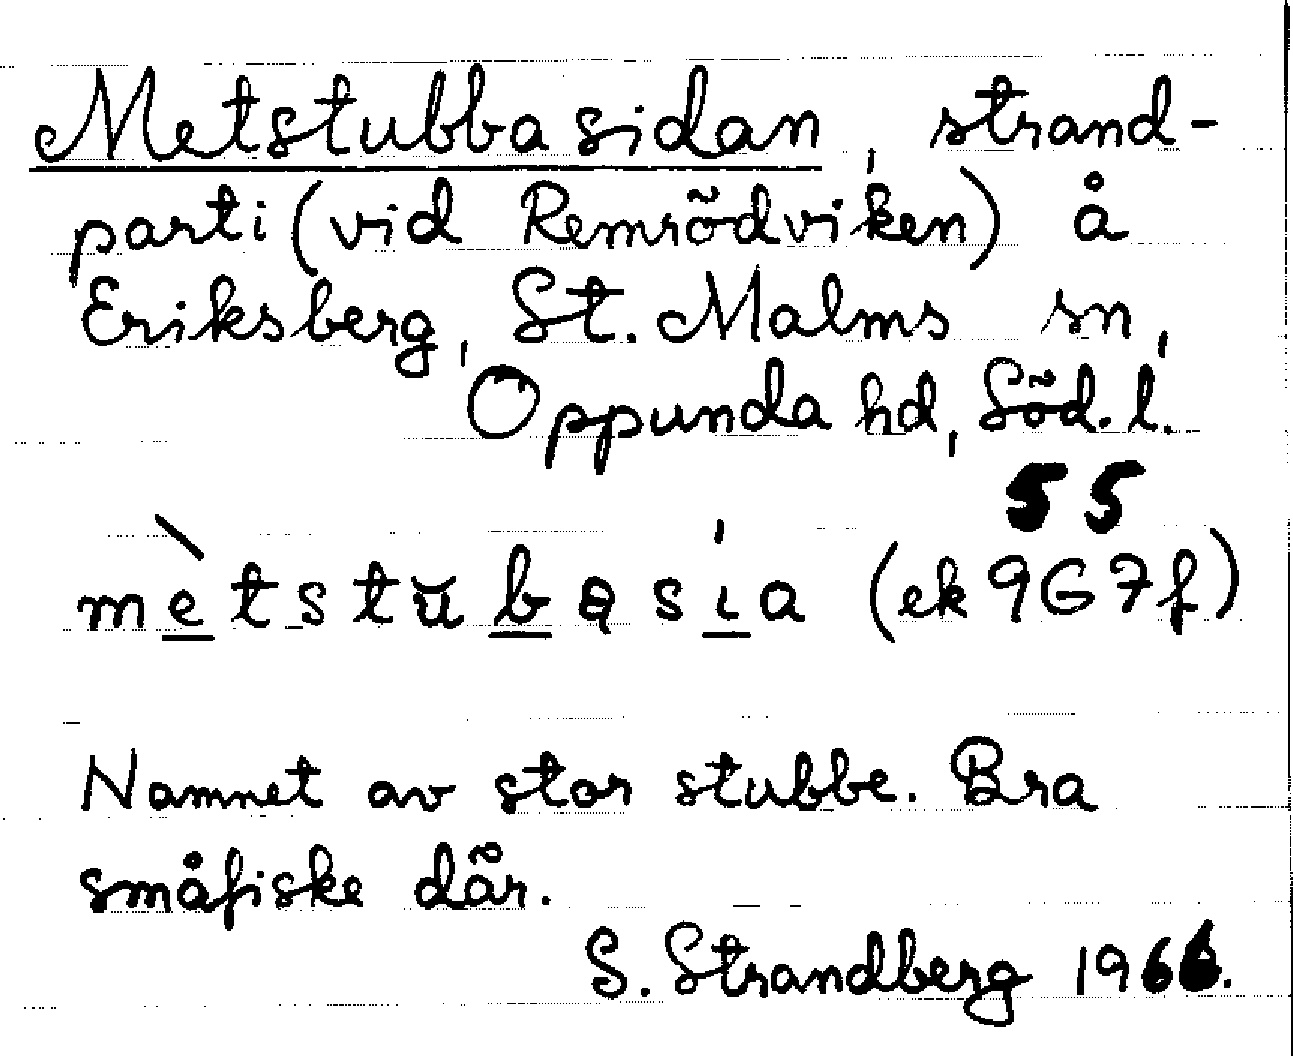 Metstubbasidan, strand-
parti (vid Remrödviken) å
Eriksberg, St. Malms sn,
Oppunda hd, Söd. l.
55
mètstŭbasia (ek 9G7f)
Namnet av stor stubbe. Bra
småfiske där.
S. Strandberg 1966.